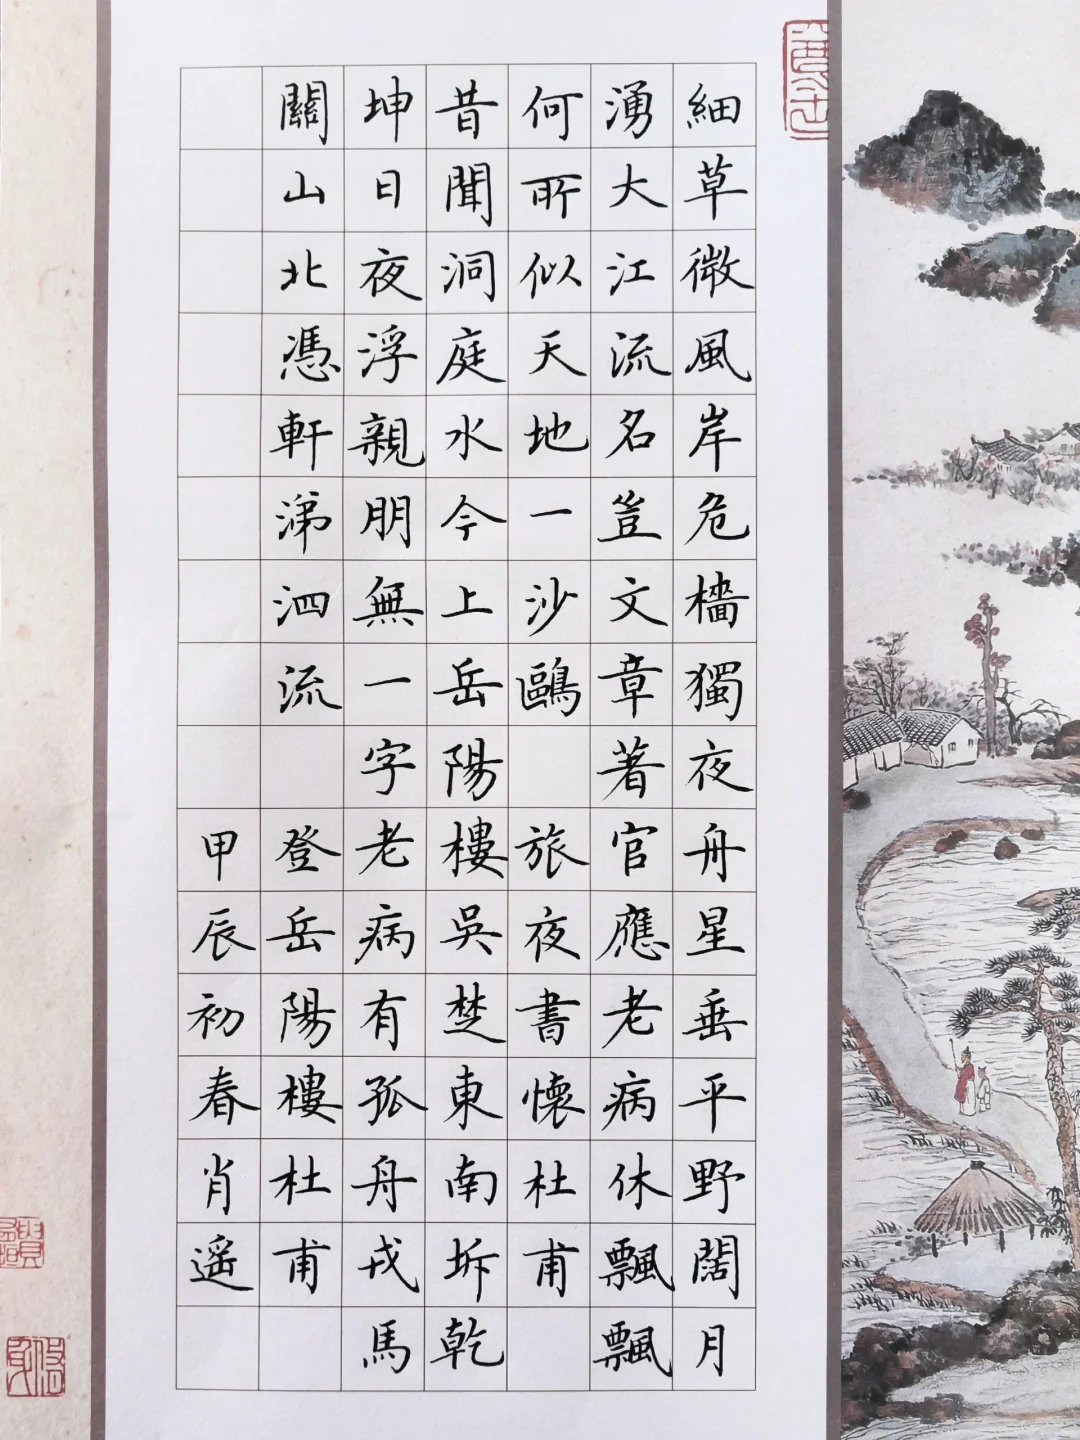 細草微風岸危檣獨夜舟星垂平野闊月
湧大江流名豈文章著官應老病休飄飄
何所似天地一沙鷗 旅夜書懷杜甫
昔聞洞庭水今上岳陽樓吳楚東南坼乾
坤日夜浮親朋無一字老病有孤舟戎馬
關山北憑軒涕泗流 登岳陽樓杜甫
甲辰初春肖遥